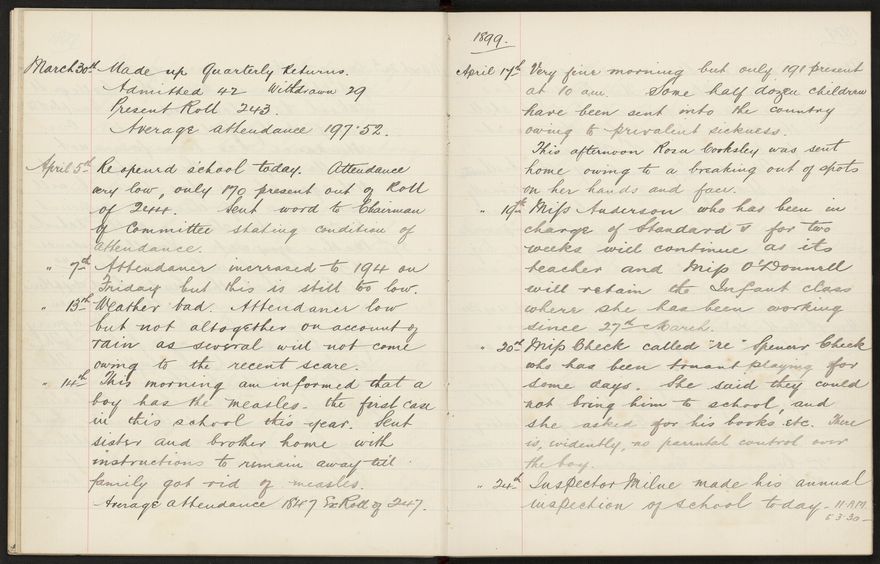 March 30th Made up Quarterly Returns.
Admitted 42 Withdrawn 29
Present Roll 243.
Average attendance 197·52.
April 5th Re opened school today. Attendance
very low, only 170 present out of Roll
of 244. Sent word to Chairman
of Committee stating condition of
attendance.
" 7th Attendance increased to 194 on
Friday but this is still too low.
" 13th Weather bad. Attendance low
but not altogether on account of
rain as several will not come
owing to the recent scare.
" 14th This morning am informed that a
boy has the measles - the first case
in this school this year. Sent
sister and brother home with
instructions to remain away till
family got rid of measles.
Average attendance 184·7 Ex Roll of 247.
1899.
April 17th Very fine morning but only 191 present
at 10 am. Some half dozen children
have been sent into the country
owing to prevalent sickness.
This afternoon Rosa Cooksley was sent
home owing to a breaking out of spots
on her hands and face.
" 19th Miss Anderson who has been in
charge of Standard V for two
weeks will continue as its
teacher and Miss O'Donnell
will retain the Infant class
where she has been working
since 27th March.
" 20th Miss Cheek called "re" Spencer Cheek
who has been truant playing for
some days. She said they could
not bring him to school, and
she asked for his books etc. There
is, evidently, no parental control over
the boy.
" 24th Inspector Milne made his annual
inspection of school today - 11 A.M.
to 3·30 -